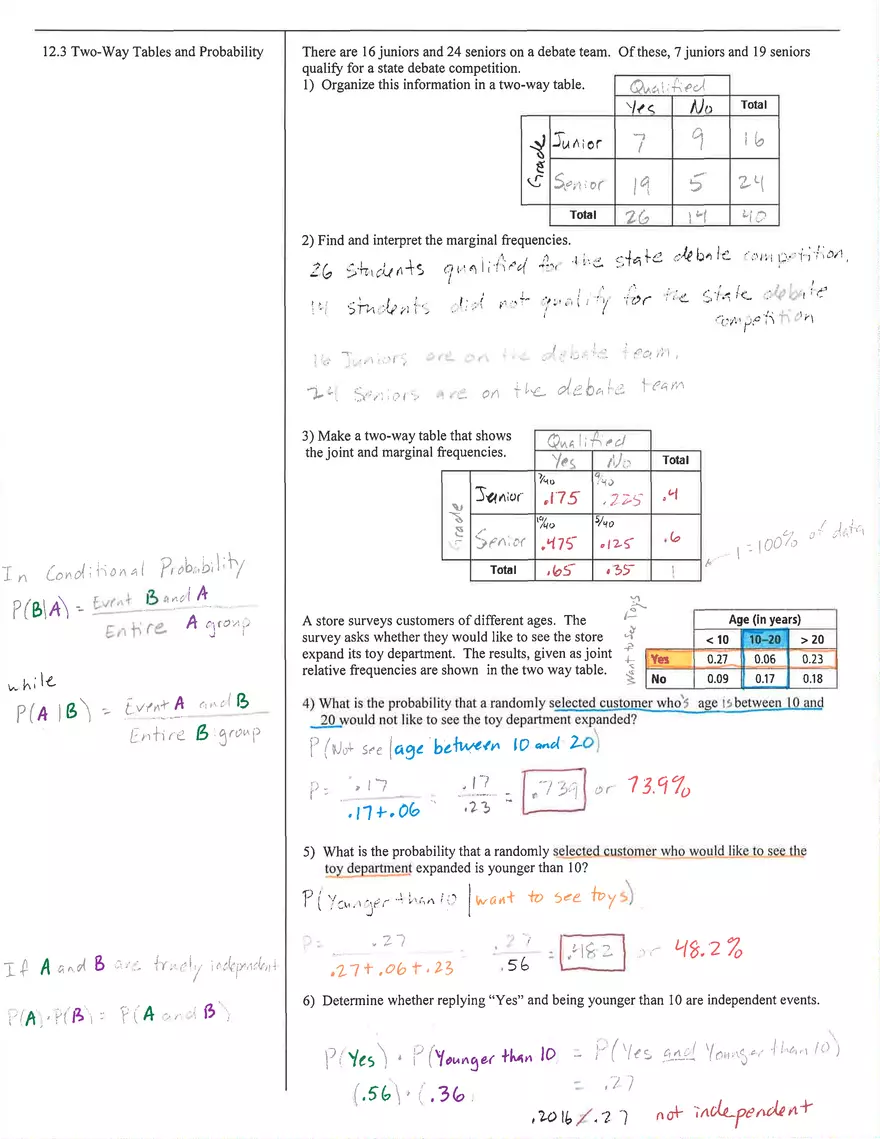 12.3 Two-Way Tables and Probability
There are 16 juniors and 24 seniors on a debate team. Of these, 7 juniors and 19 seniors
qualify for a state debate competition.
1) Organize this information in a two-way table.
Qualified
Yes No Total
Grade
Junior 7 9 16
Senior 19 5 24
Total 26 14 40
2) Find and interpret the marginal frequencies.
26 students qualified for the state debate competition.
14 students did not qualify for the state debate
competition
16 Juniors are on the debate team.
24 Seniors are on the debate team
3) Make a two-way table that shows
the joint and marginal frequencies.
Qualified
Yes No Total
Grade
7/40 9/40
Junior .175 .225 .4
19/40 5/40
Senior .475 .125 .6
Total .65 .35 1
1 = 100% of data
In Conditional Probability
P(B|A) = Event B and A
Entire A group
while
P(A|B) = Event A and B
Entire B group
A store surveys customers of different ages. The
survey asks whether they would like to see the store
expand its toy department. The results, given as joint
relative frequencies are shown in the two way table.
Want to See Toys
Age (in years)
< 10 10–20 > 20
Yes 0.27 0.06 0.23
No 0.09 0.17 0.18
4) What is the probability that a randomly selected customer who's age is between 10 and
20 would not like to see the toy department expanded?
P(Not see | age between 10 and 20)
P = .17 = .17 = .739 or 73.9%
.17+.06 .23
5) What is the probability that a randomly selected customer who would like to see the
toy department expanded is younger than 10?
P(Younger than 10 | want to see toys)
P= .27 = .27 = .482 or 48.2%
.27+.06+.23 .56
If A and B are truely independent
P(A)·P(B) = P(A and B)
6) Determine whether replying “Yes” and being younger than 10 are independent events.
P(Yes) · P(Younger than 10) = P(Yes and Younger than 10)
(.56) · (.36) = .27
.2016 ≠ .27 not independent